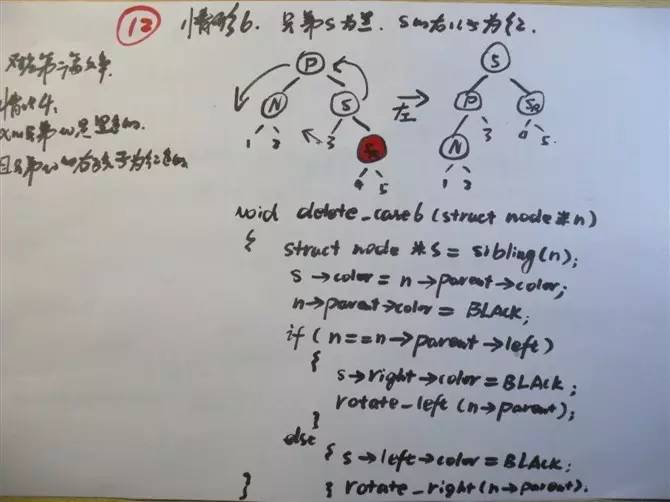 12 情形6. 兄弟S为黑. S的右儿子为红.
对应第二篇文章.
情形4:
x的兄弟w是黑色的.
且兄弟w的右孩子为红色的.
P P S
N S 左 P SR
1 2 3 SR N 3 4 5
4 5 1 2
void delete_case6(struct node *n)
{ struct node *s = sibling(n);
s->color = n->parent->color;
n->parent->color = BLACK;
if (n==n->parent->left)
{
s->right->color = BLACK;
rotate_left (n->parent);
}
else
{ s->left->color = BLACK;
} { rotate_right(n->parent).